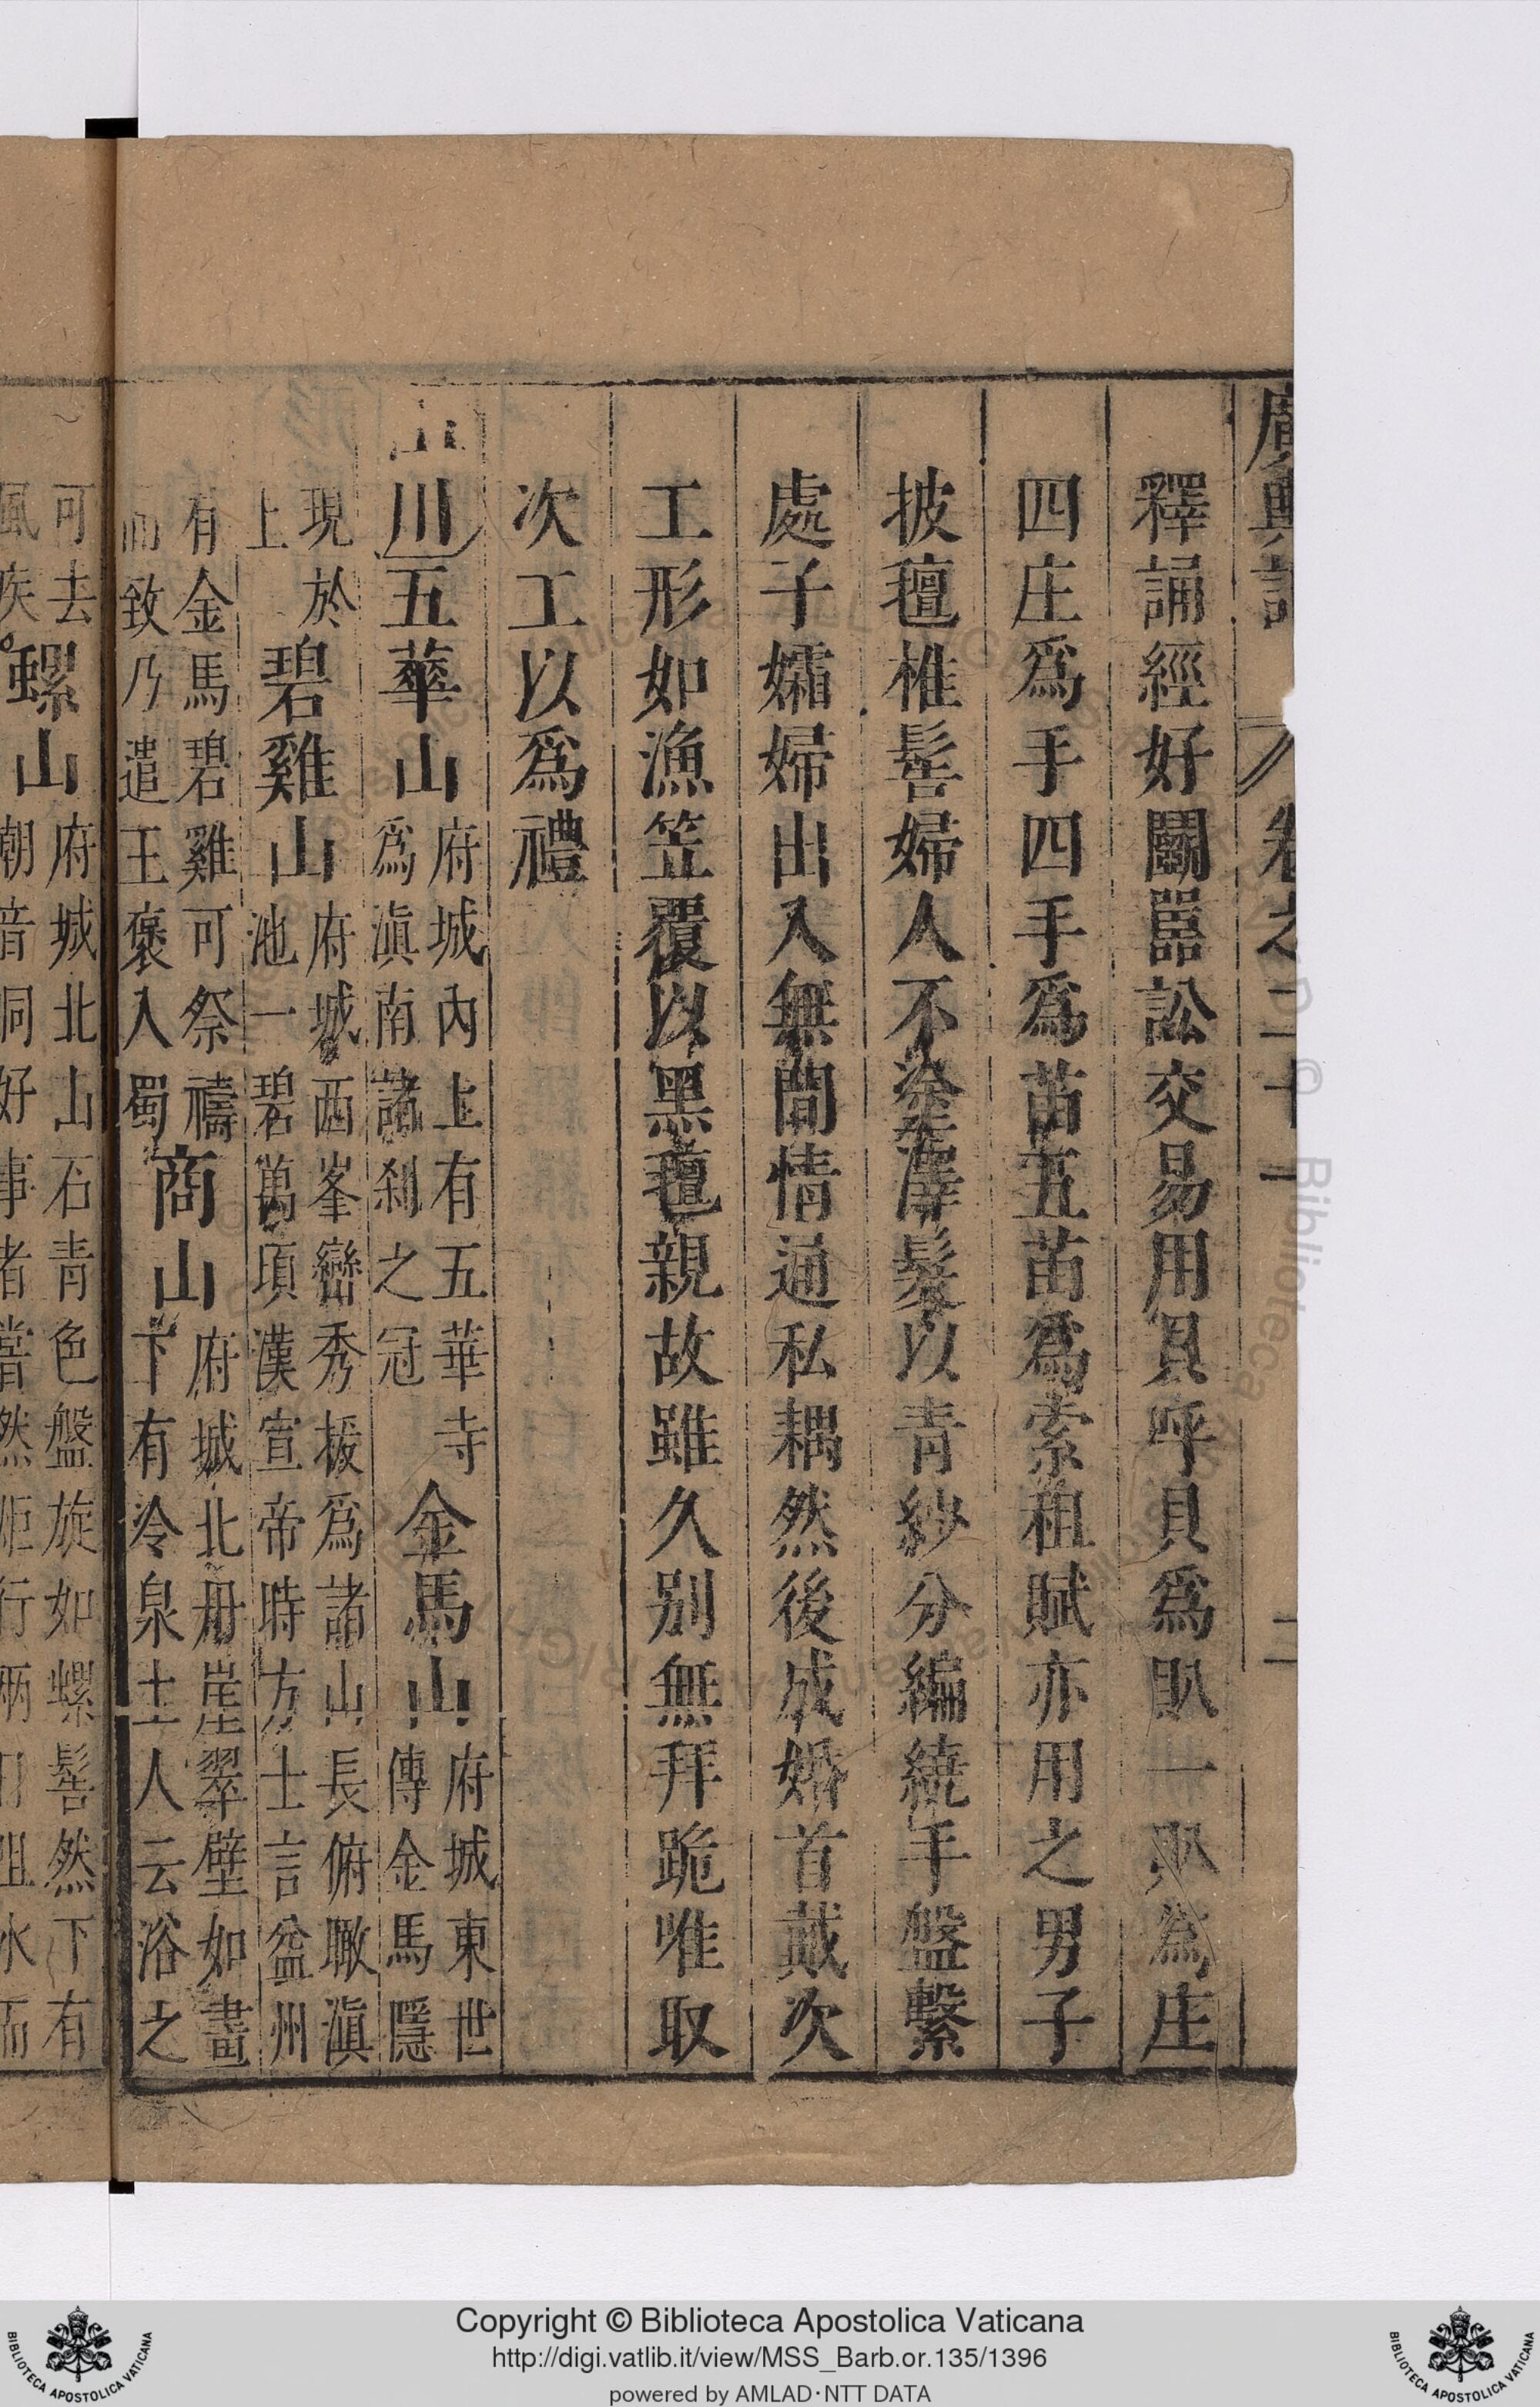 廣輿記 卷之二十一 二
釋誦經好鬭嚚訟交易用貝呼貝為𧵅一𧵅為庄
四庄為手四手為苗五苗為索租賦亦用之男子
披氊椎髻婦人不塗澤髮以青紗分編繞手盤繫
處子孀婦出入無間情通私耦然後成婚首戴次
工形如漁笠覆以黑氊親故雖久別無拜跪唯取
次工以為禮
山川 五華山 府城內上有五華寺
為滇南諸剎之冠 金馬山 府城東世
傳金馬隱
現於
上 碧雞山 府城西峯巒秀拔為諸山長俯瞰滇
池一碧萬頃漢宣帝時方士言益州
有金馬碧雞可祭禱
而致乃遣王褒入蜀 商山 府城北丹崖翠壁如畫
下有冷泉土人云浴之
可去
風疾 螺山 府城北山石青色盤旋如螺髻然下有
朝音洞好事者嘗然炬行 阻水而
Copyright © Biblioteca Apostolica Vaticana
http://digi.vatlib.it/view/MSS_Barb.or.135/1396
powered by AMLAD·NTT DATA
BIBLIOTECA APOSTOLICA VATICANA
BIBLIOTECA APOSTOLICA VATICANA